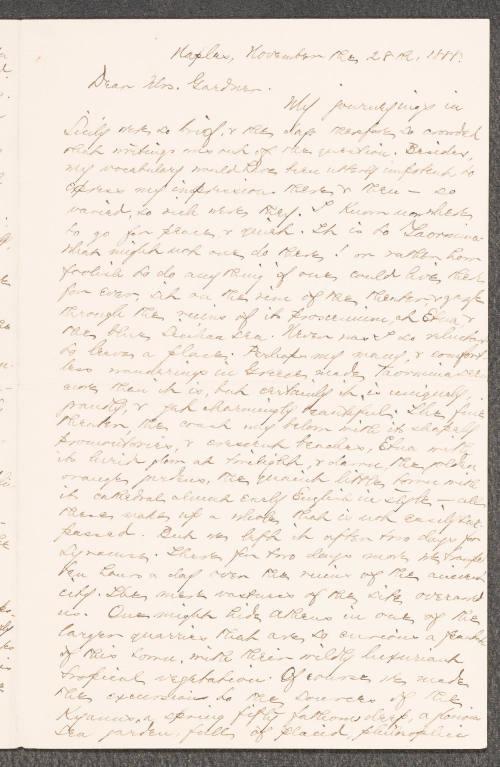 Naples, November the 28th, 1888.
Dear Mrs. Gardner.
My journeyings in
Sicily were so brief, & the days therefore so crowded
that writing was out of the question. Besides,
my vocabulary would have been utterly impotent to
express my impression there & then — so
varied, so rich were they. I know now where
to go for peace & quiet. It is to Taormina.
What might not one do there! or rather how
foolish to do anything if one could live there
for ever, sit on the rim of the theater, & gaze
through the ruins of its proscenium, at Etna &
the blue Sea. Never was I so reluctant
to leave a place. Perhaps my many, & comfort-
less wanderings in Greece made Taormina seem
more than it is, but certainly it is uniquely,
grandly, & yet charmingly beautiful. The fine
theater, the coast way below with its shapely
promontories, & crescent beaches, Etna with
its lurid glow at twilight, & dawn, the golden
orange gardens, the quaint little town with
its cathedral almost early English in style, — all
these make up a whole that is not easily sur-
passed. But we left it after two days for
Syracuse. There for two days more we tramped
ten hours a day over the ruins of the ancient
city. The mere vastness of the site overawed
us. One might hide Athens in one of the
larger quarries that are so curious a feature
of this town, with their wildly luxuriant
tropical vegetation. Of course we made
the excursion to the sources of the
Kyanus, a spring fifty fathoms deep, a
sea garden, full of placid, philosophic